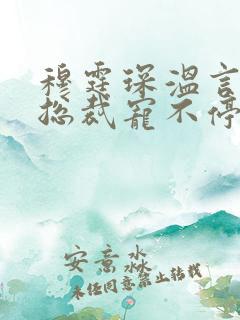 穆霆琛温言
总裁宠不停
安意淼
未经同意禁止转载